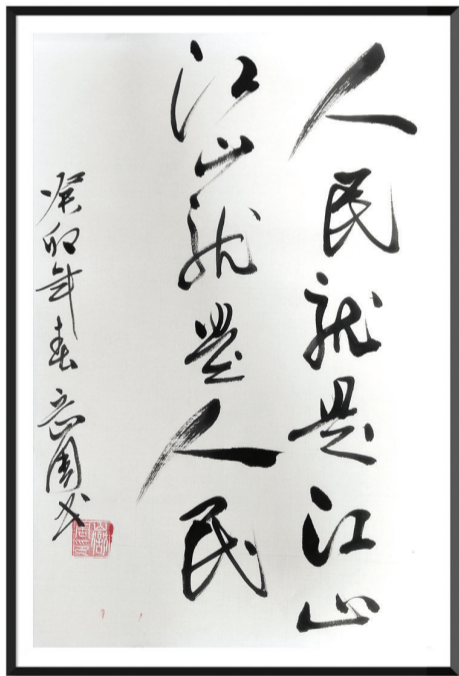 人民就是江山
江山就是人民
癸卯年春 志国书